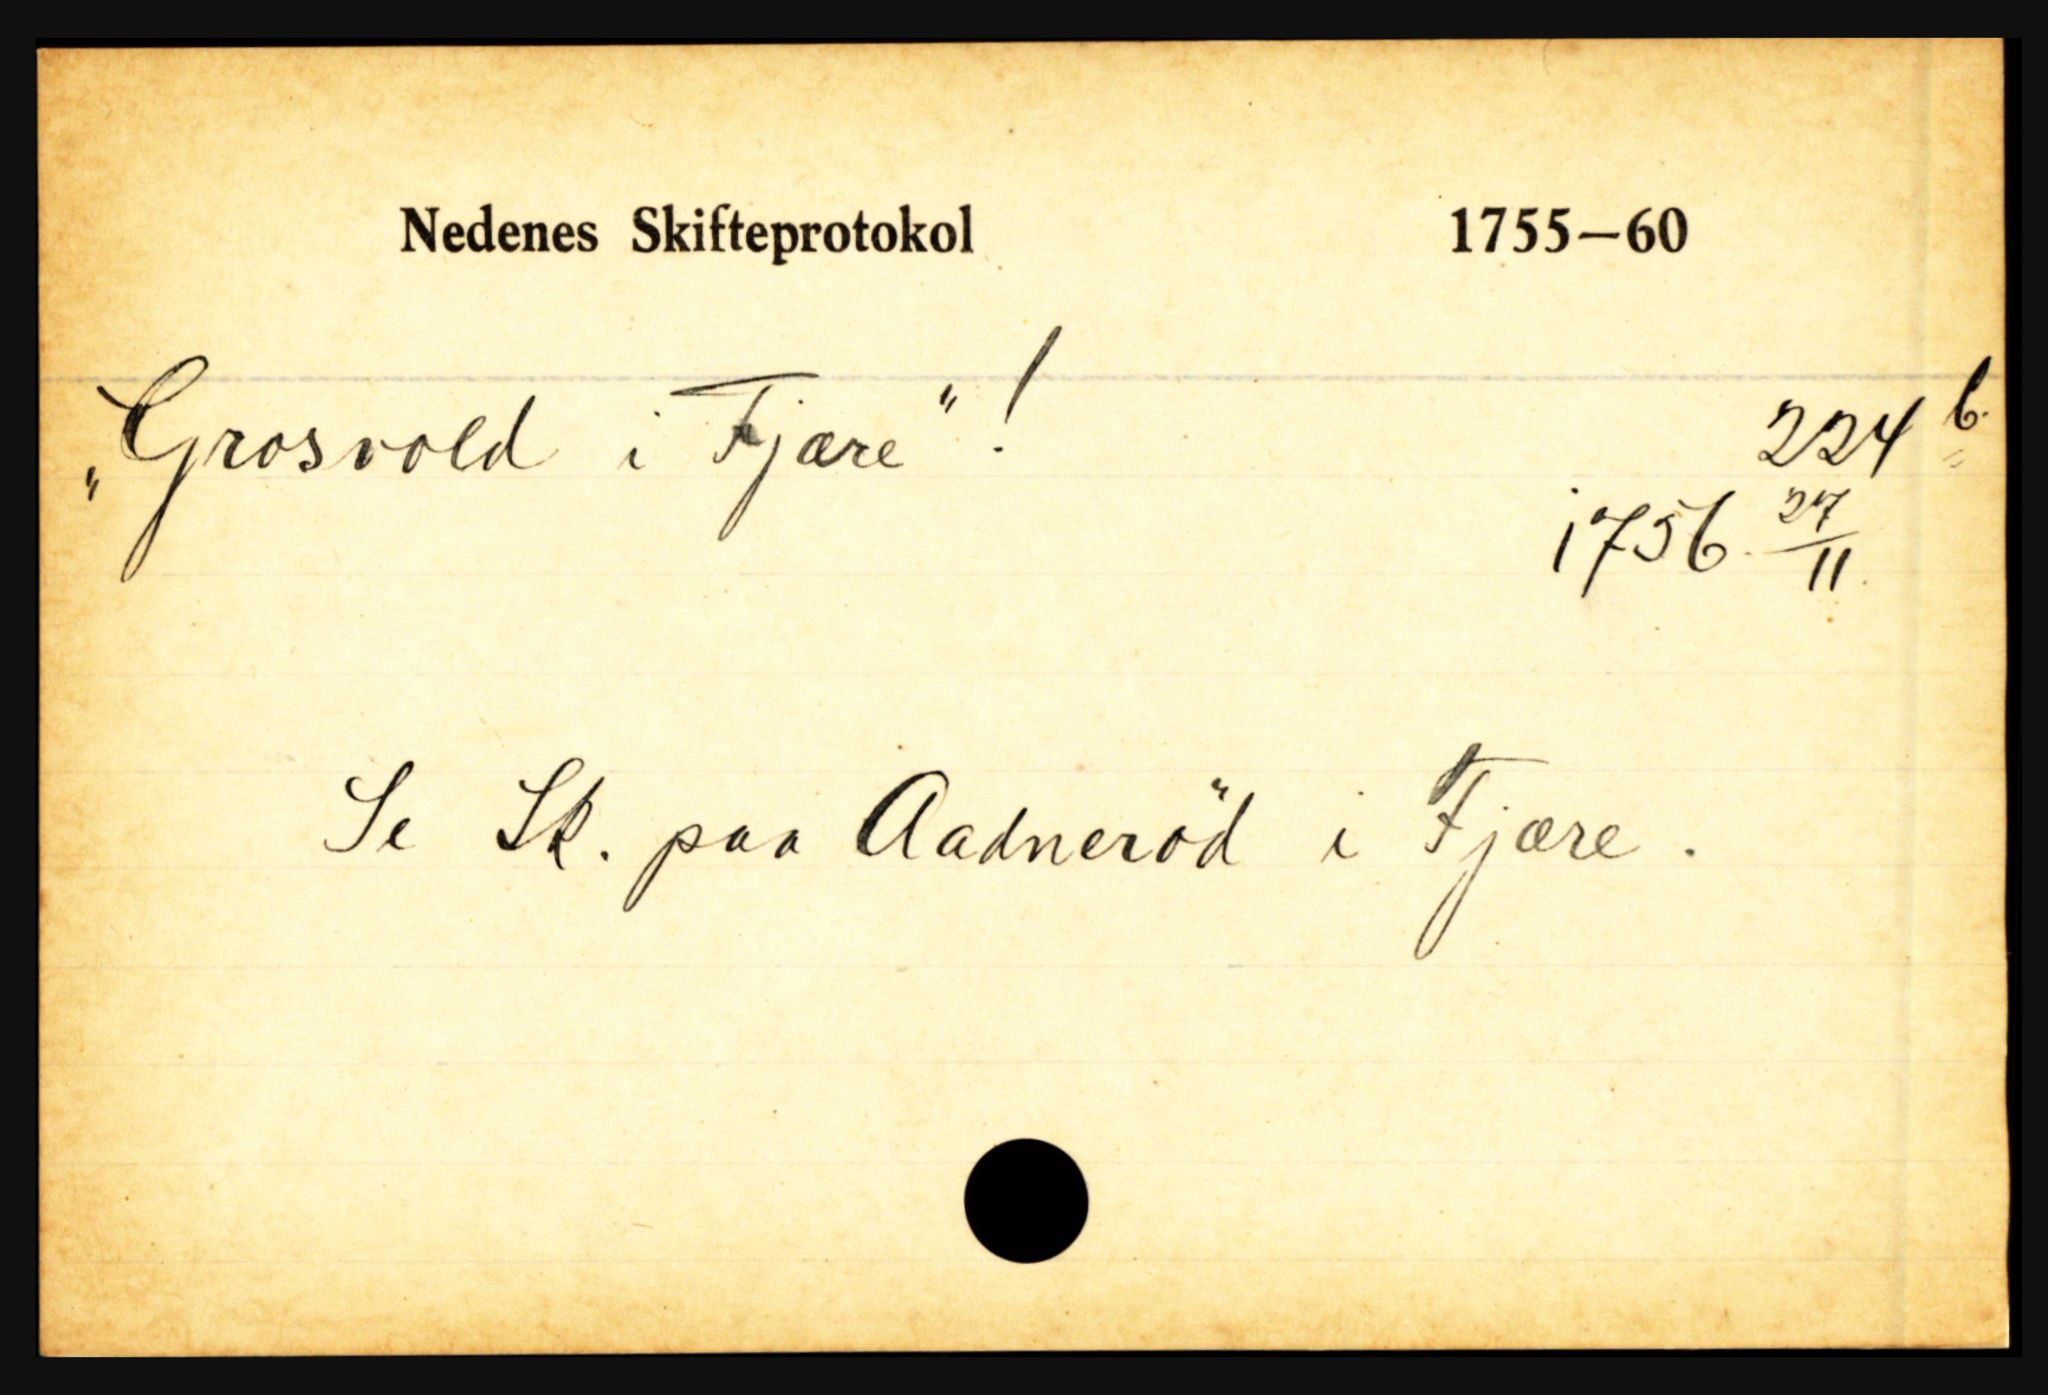 Nedenes Skifteprotokol 1755—60
„Grosvold i Fjære“! 224 b.
1756. 27/11.
Se Sk. paa Aadneröd i Fjære.